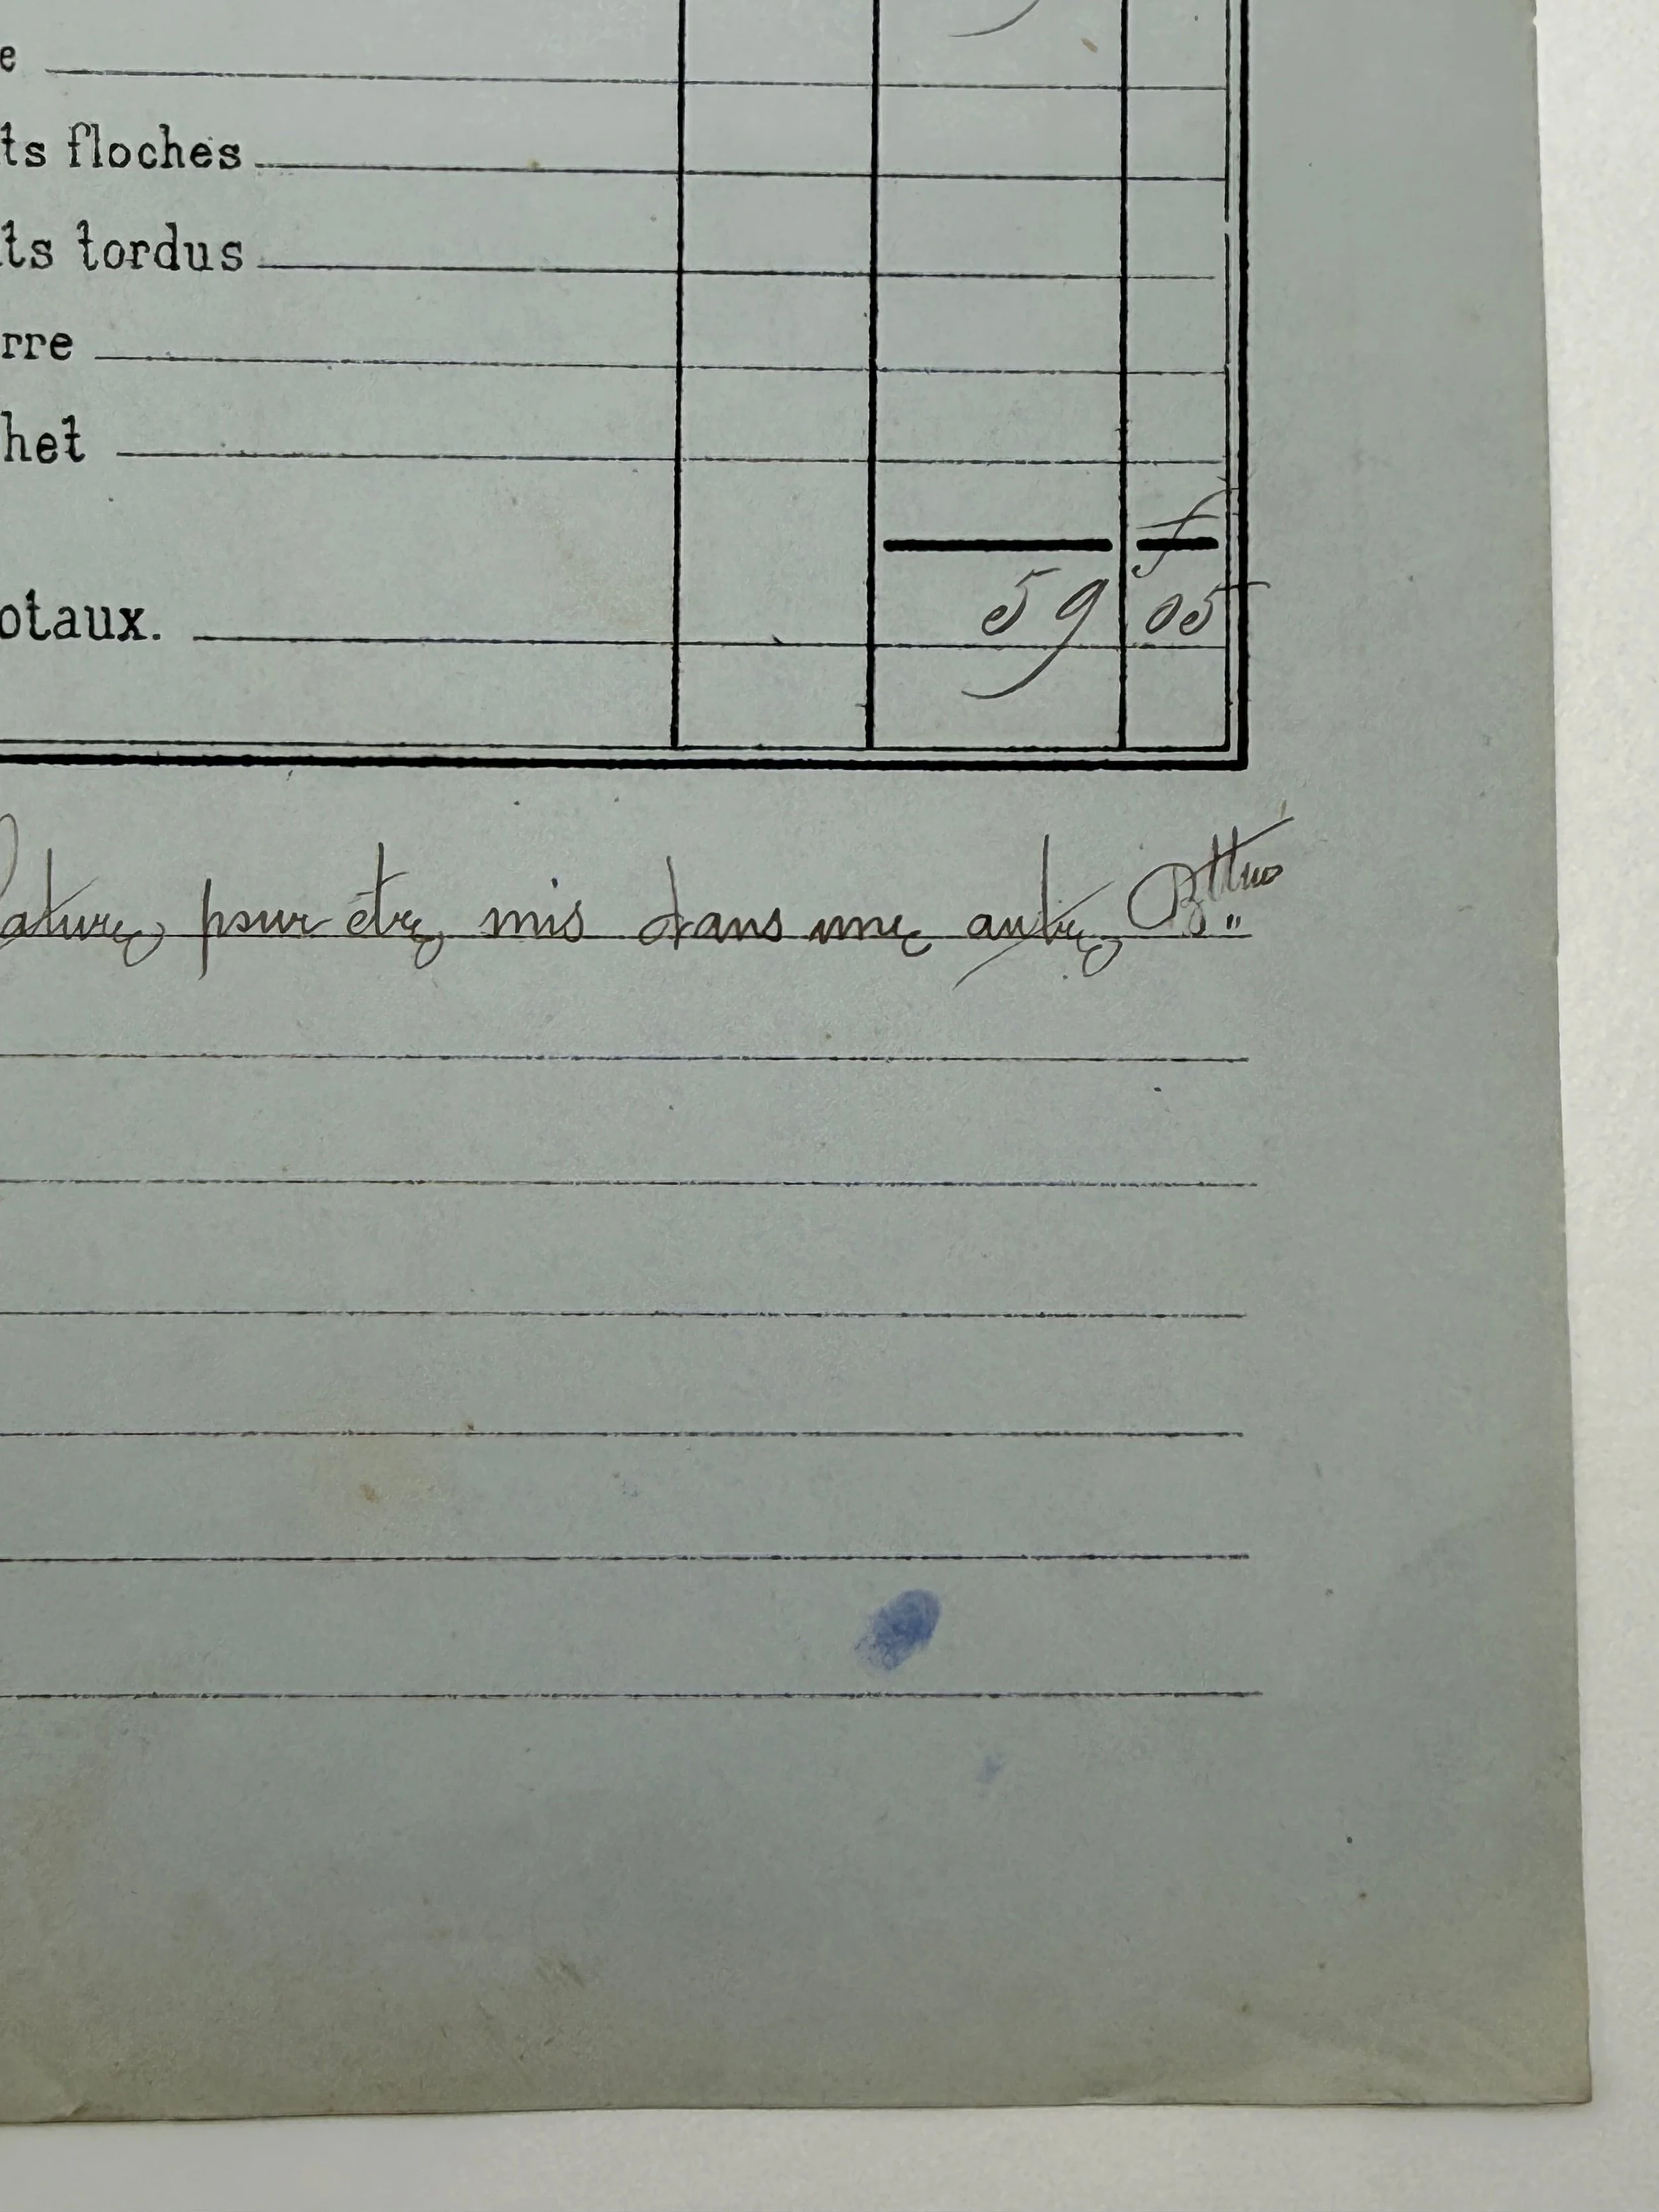 e
ts floches
ts tordus
rre
het
f
otaux. 59 05
ature pour être mis dans une autre